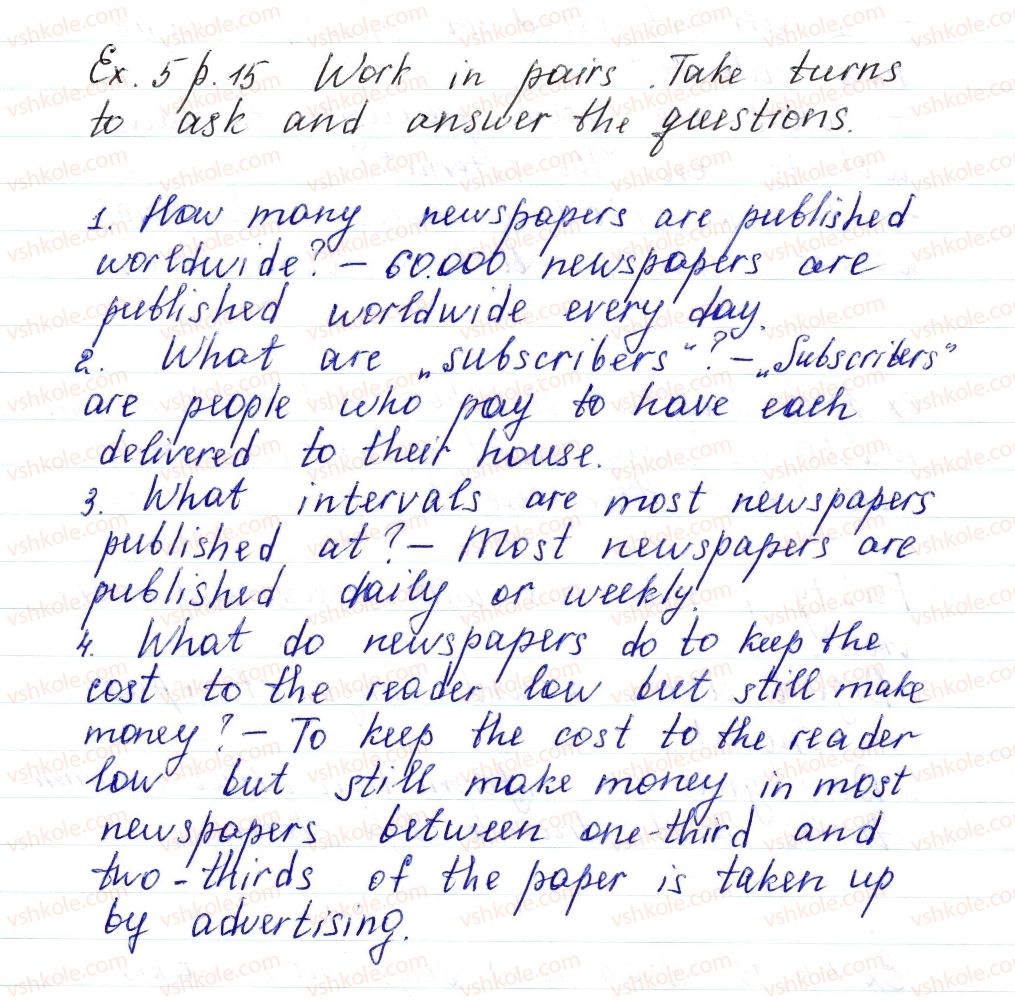 Ex. 5 p. 15 Work in pairs. Take turns
to ask and answer the questions.
1. How many newspapers are published
worldwide? – 60.000 newspapers are
published worldwide every day.
2. What are „subscribers“? – „Subscribers“
are people who pay to have each
delivered to their house.
3. What intervals are most newspapers
published at? – Most newspapers are
published daily or weekly.
4. What do newspapers do to keep the
cost to the reader low but still make
money? – To keep the cost to the reader
low but still make money in most
newspapers between one-third and
two-thirds of the paper is taken up
by advertising.
vshkole.com